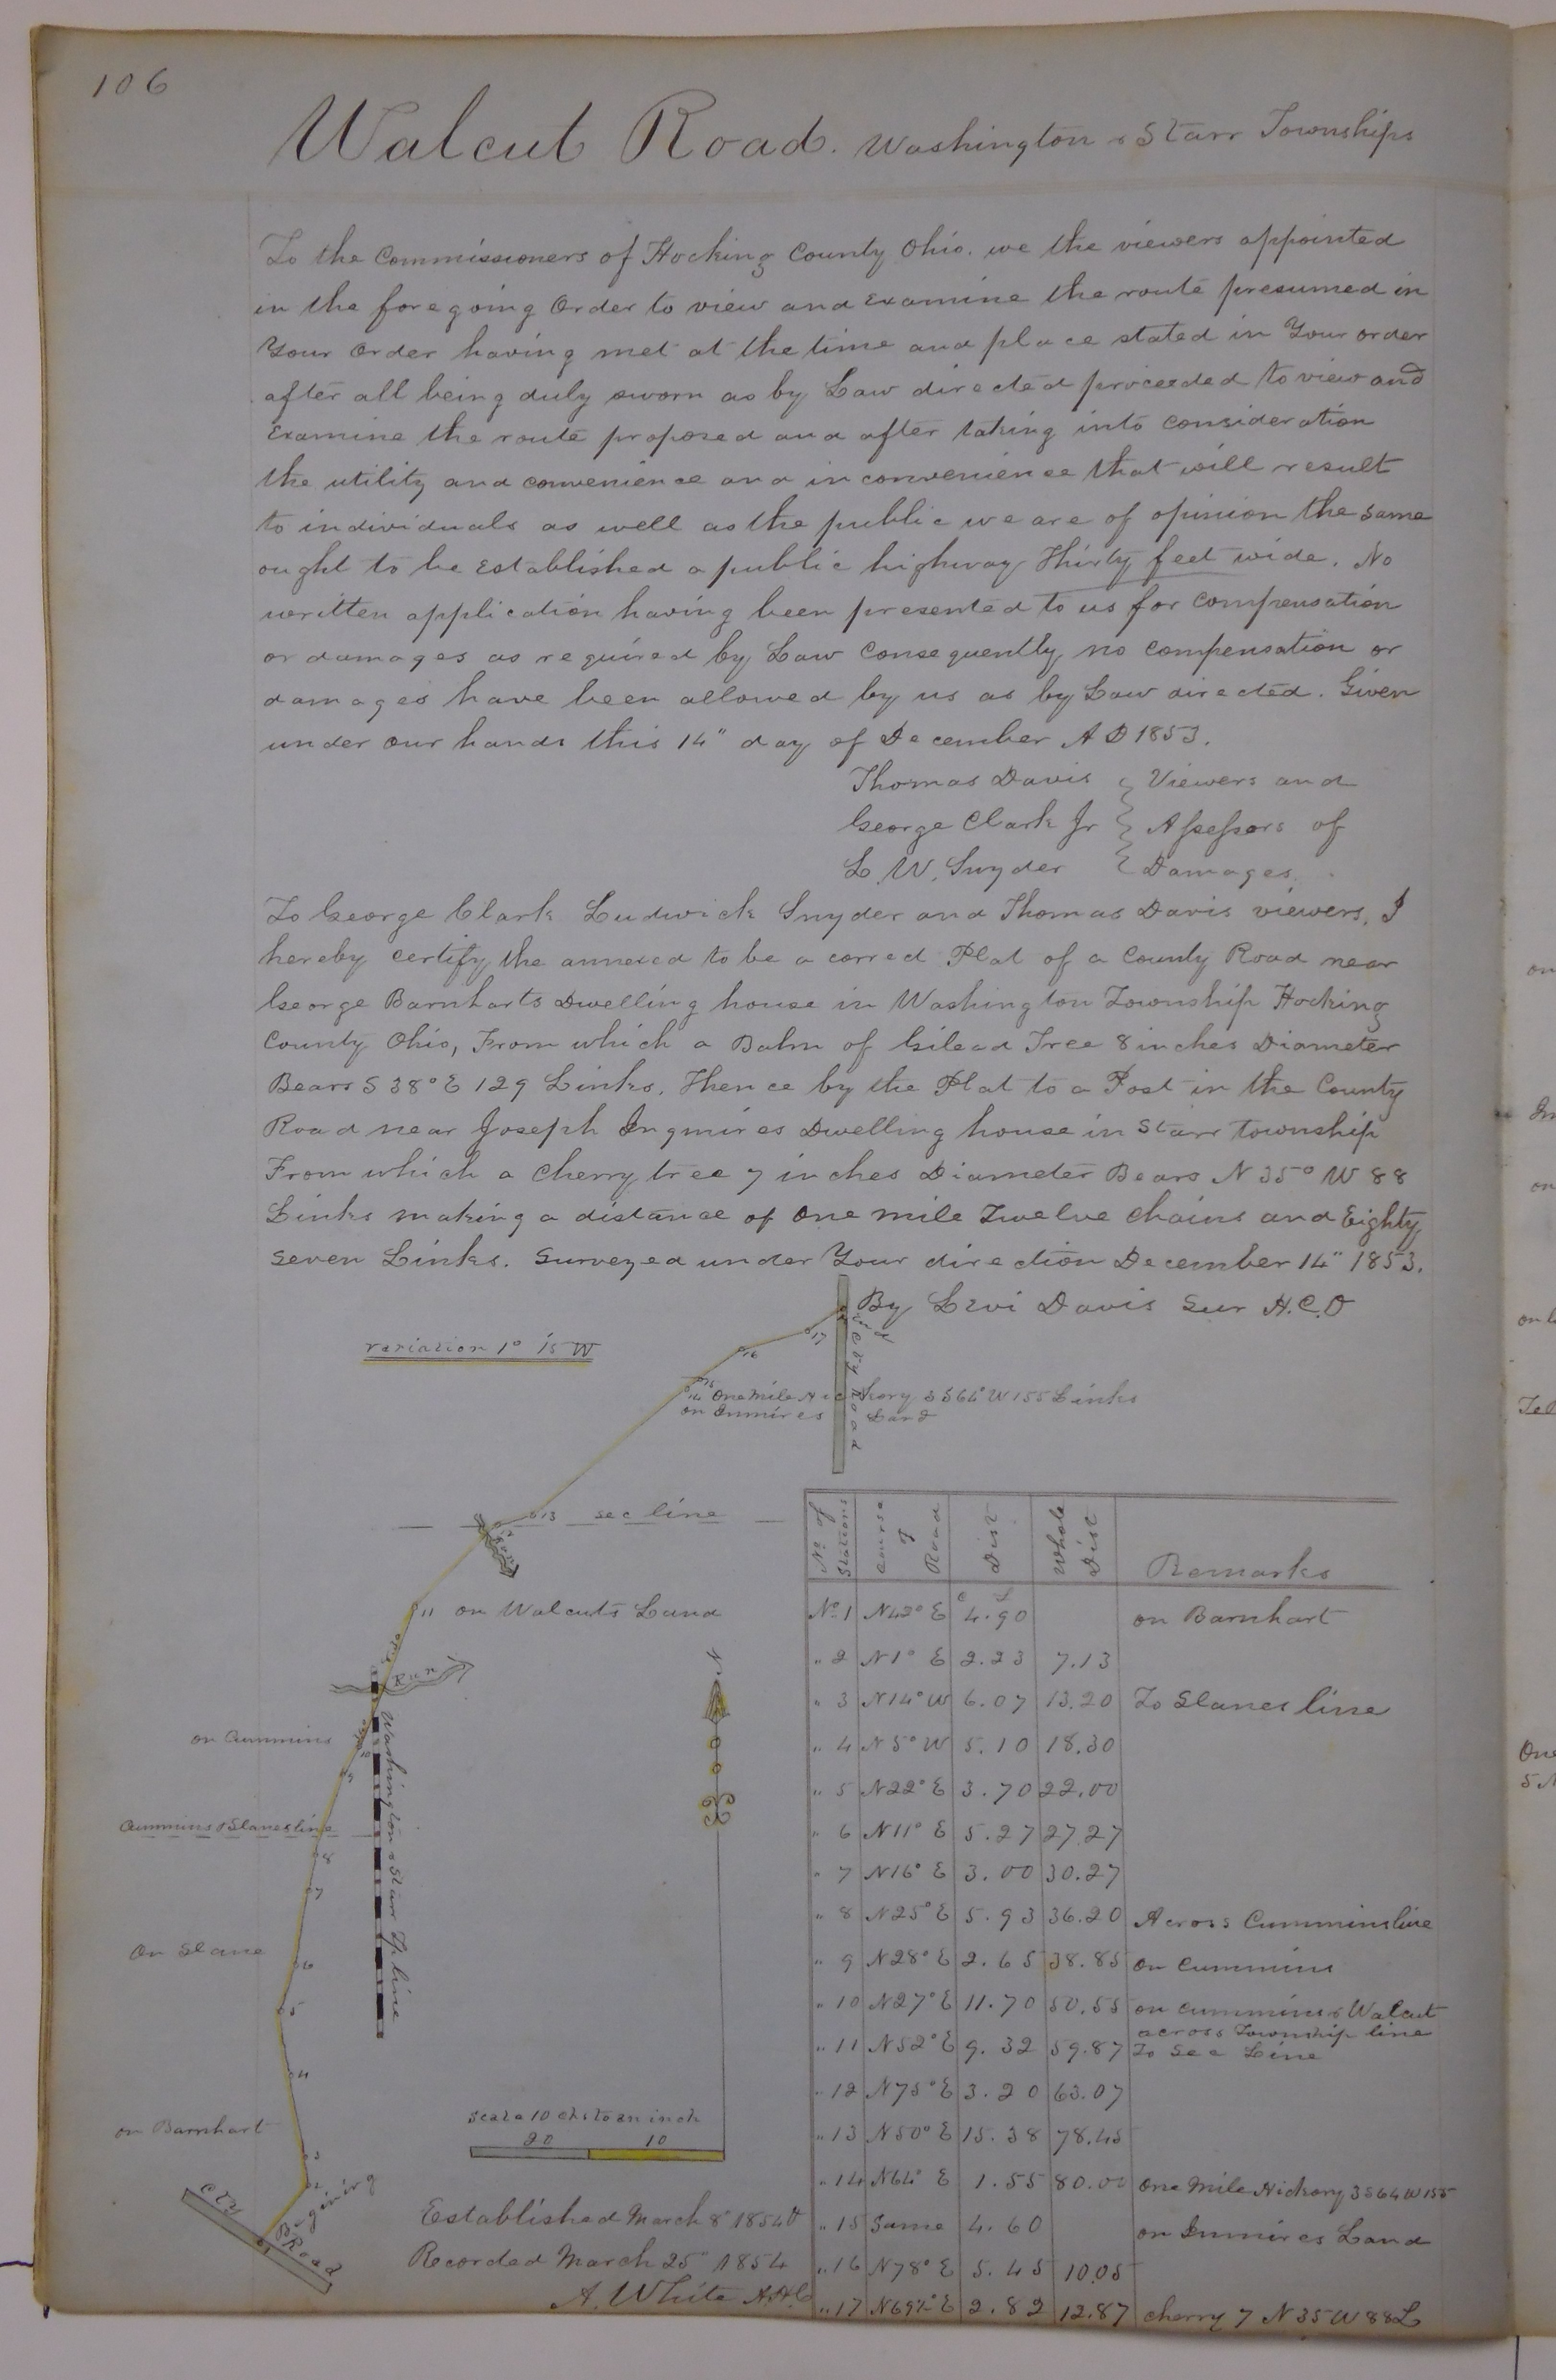 106
Walcut Road. Washington & Starr Townships
To the Commissioners of Hocking County Ohio. we the viewers appointed
in the foregoing Order to view and Examine the route presumed in
Your Order having met at the time and place stated in Your order
after all being duly sworn as by Law directed proceeded to view and
Examine the route proposed and after taking into consideration
the utility and convenience and inconvenience that will result
to individuals as well as the public we are of opinion the same
ought to be Established a public highway Thirty feet wide. No
written application having been presented to us for compensation
or damages as required by Law Consequently no compensation or
damages have been allowed by us as by Law directed. Given
under our hands this 14" day of December A D 1853.
Thomas Davis } Viewers and
George Clark Jr } Assessors of
L. W. Snyder } Damages.
To George Clark Ludwick Snyder and Thomas Davis viewers, I
hereby certify the annexed to be a correct Plat of a County Road near
George Barnharts Dwelling house in Washington Township Hocking
County Ohio, From which a Balm of Gilead Tree 8 inches Diameter
Bears S 38° E 129 Links. Thence by the Plat to a Post in the County
Road near Joseph Inmires Dwelling house in Starr township
From which a Cherry tree 7 inches Diameter Bears N 35° W 88
Links making a distance of One mile Twelve Chains and Eighty
seven Links. Surveyed under Your direction December 14" 1853.
By Levi Davis Sur H.C.O
variation 1° 15 W
End
Cty Road
17
16
15
14 One Mile Hickory 3 S 64° W 155 Links
on Inmires Land
13 sec line
12
Run
11 on Walcuts Land
Run
on Cummins
10
9
Washington & Starr Tp. line
Cummins & Slanes line
8
7
On Slane
6
5
4
on Barnhart
3
2
Begining
Cty Road
1
N
Scale 10 chs to an inch
20 10
Established March 8" 1854
Recorded March 25" 1854
A. White
No of Stations | Course of Road | Dist | Whole Dist | Remarks
No 1 | N42° E | C L 4.90 | | on Barnhart
" 2 | N1° E | 2.23 | 7.13
" 3 | N14° W | 6.07 | 13.20 | To Slanes line
" 4 | N5° W | 5.10 | 18.30
" 5 | N22° E | 3.70 | 22.00
" 6 | N11° E | 5.27 | 27.27
" 7 | N16° E | 3.00 | 30.27
" 8 | N25° E | 5.93 | 36.20 | Across Cummins line
" 9 | N28° E | 2.65 | 38.85 | on Cummins
" 10 | N27° E | 11.70 | 50.55 | on Cummins & Walcut across Township line
" 11 | N52° E | 9.32 | 59.87 | To Sec Line
" 12 | N75° E | 3.20 | 63.07
" 13 | N50° E | 15.38 | 78.45
" 14 | N64° E | 1.55 | 80.00 | One Mile Hickory 3 S 64 W 155
" 15 | Same | 4.60 | | on Inmires Land
" 16 | N78° E | 5.45 | 10.05
" 17 | N69½° E | 2.82 | 12.87 | cherry 7 N 35 W 88 L